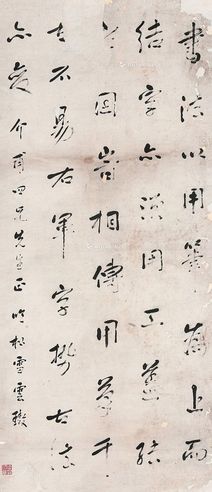 書法以用筆為上而
結字亦須用工蓋結
字因時相傳用筆千
古不易右軍字勢古法
亦變 介甫四兄先生正 吟松雪雲